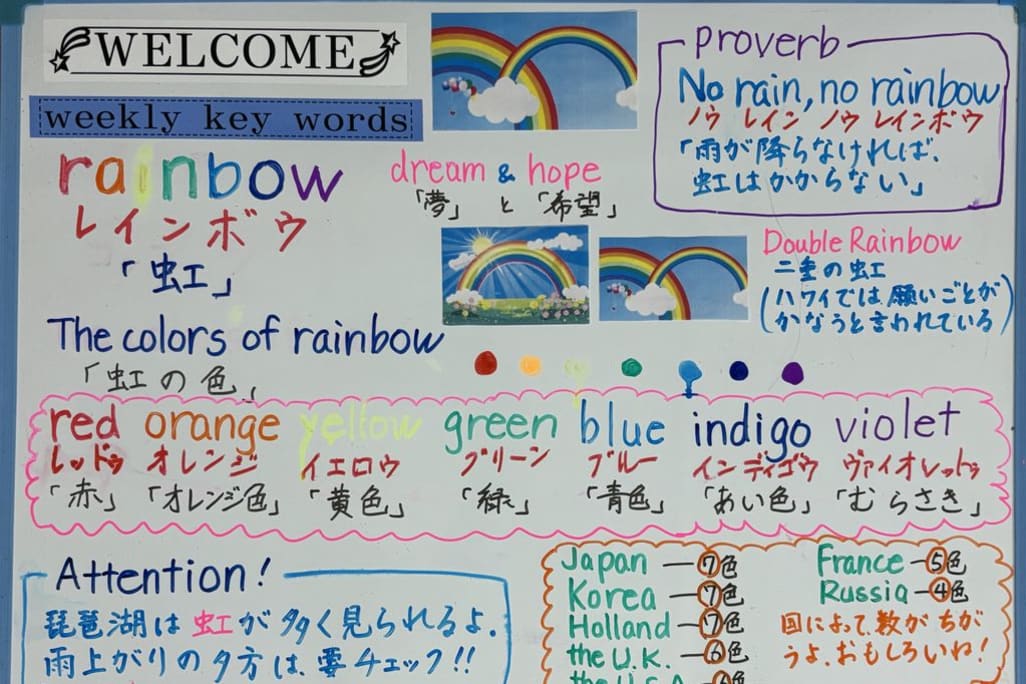 WELCOME
weekly key words
rainbow
レインボウ
「虹」
dream & hope
「夢」と「希望」
Proverb
No rain, no rainbow
ノウ レイン ノウ レインボウ
「雨が降らなければ、
虹はかからない」
Double Rainbow
二重の虹
(ハワイでは願いごとが
かなうと言われている)
The colors of rainbow
「虹の色」
red orange yellow green blue indigo violet
レッドゥ オレンジ イエロウ グリーン ブルー インディゴウ ヴァイオレットゥ
「赤」 「オレンジ色」 「黄色」 「緑」 「青色」 「あい色」 「むらさき」
Attention!
琵琶湖は虹が多く見られるよ.
雨上がりの夕方は、要チェック!!
Japan ー⑦色
Korea ー⑦色
Holland ー⑦色
the U.K. ー⑥色
the U.S.A ⑥色
France ー⑤色
Russia ー④色
国によって数がちが
うよ.おもしろいね!